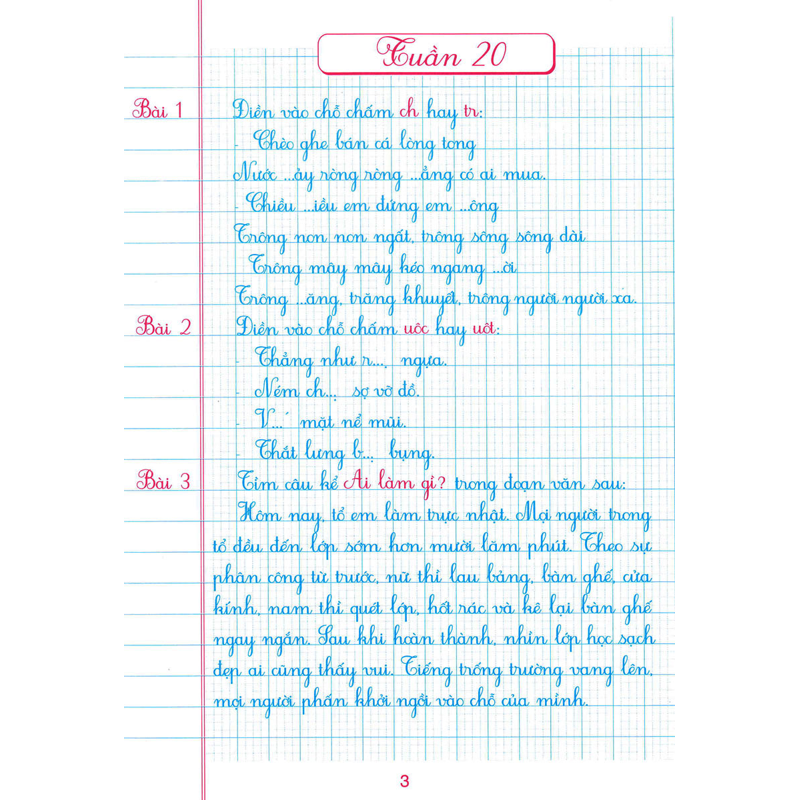 Tuần 20
Bài 1 Điền vào chỗ chấm ch hay tr:
- Chèo ghe bán cá lòng tong
Nước ...ảy ròng ròng ...ẳng có ai mua.
- Chiều ...iều em đứng em ...ông
Trông non non ngất, trông sông sông dài
Trông mây mây kéo ngang ...ời
Trông ...ăng, trăng khuyết, trông người người xa.
Bài 2 Điền vào chỗ chấm uôc hay uôt:
- Thẳng như r... ngựa.
- Ném ch... sợ vỡ đồ.
- V...´ mặt nể mũi.
- Thắt lưng b... bụng.
Bài 3 Tìm câu kể Ai làm gì? trong đoạn văn sau:
Hôm nay, tổ em làm trực nhật. Mọi người trong
tổ đều đến lớp sớm hơn mười lăm phút. Theo sự
phân công từ trước, nữ thì lau bảng, bàn ghế, cửa
kính, nam thì quét lớp, hốt rác và kê lại bàn ghế
ngay ngắn. Sau khi hoàn thành, nhìn lớp học sạch
đẹp ai cũng thấy vui. Tiếng trống trường vang lên,
mọi người phấn khởi ngồi vào chỗ của mình.
3